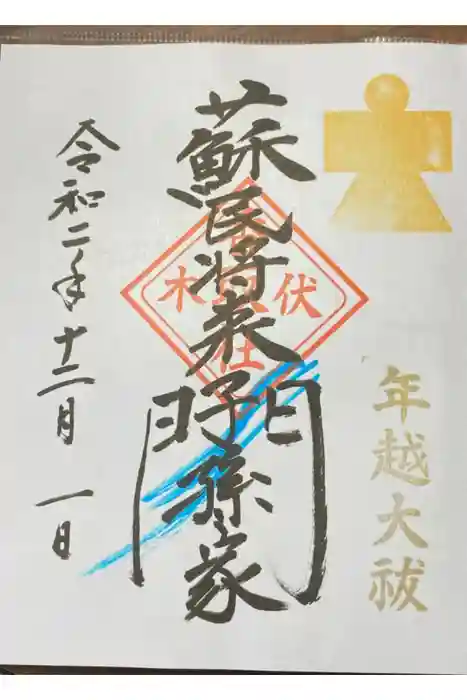 年越大祓
蘇民将来子孫家門
木 伏
社
令和二年十二月一日